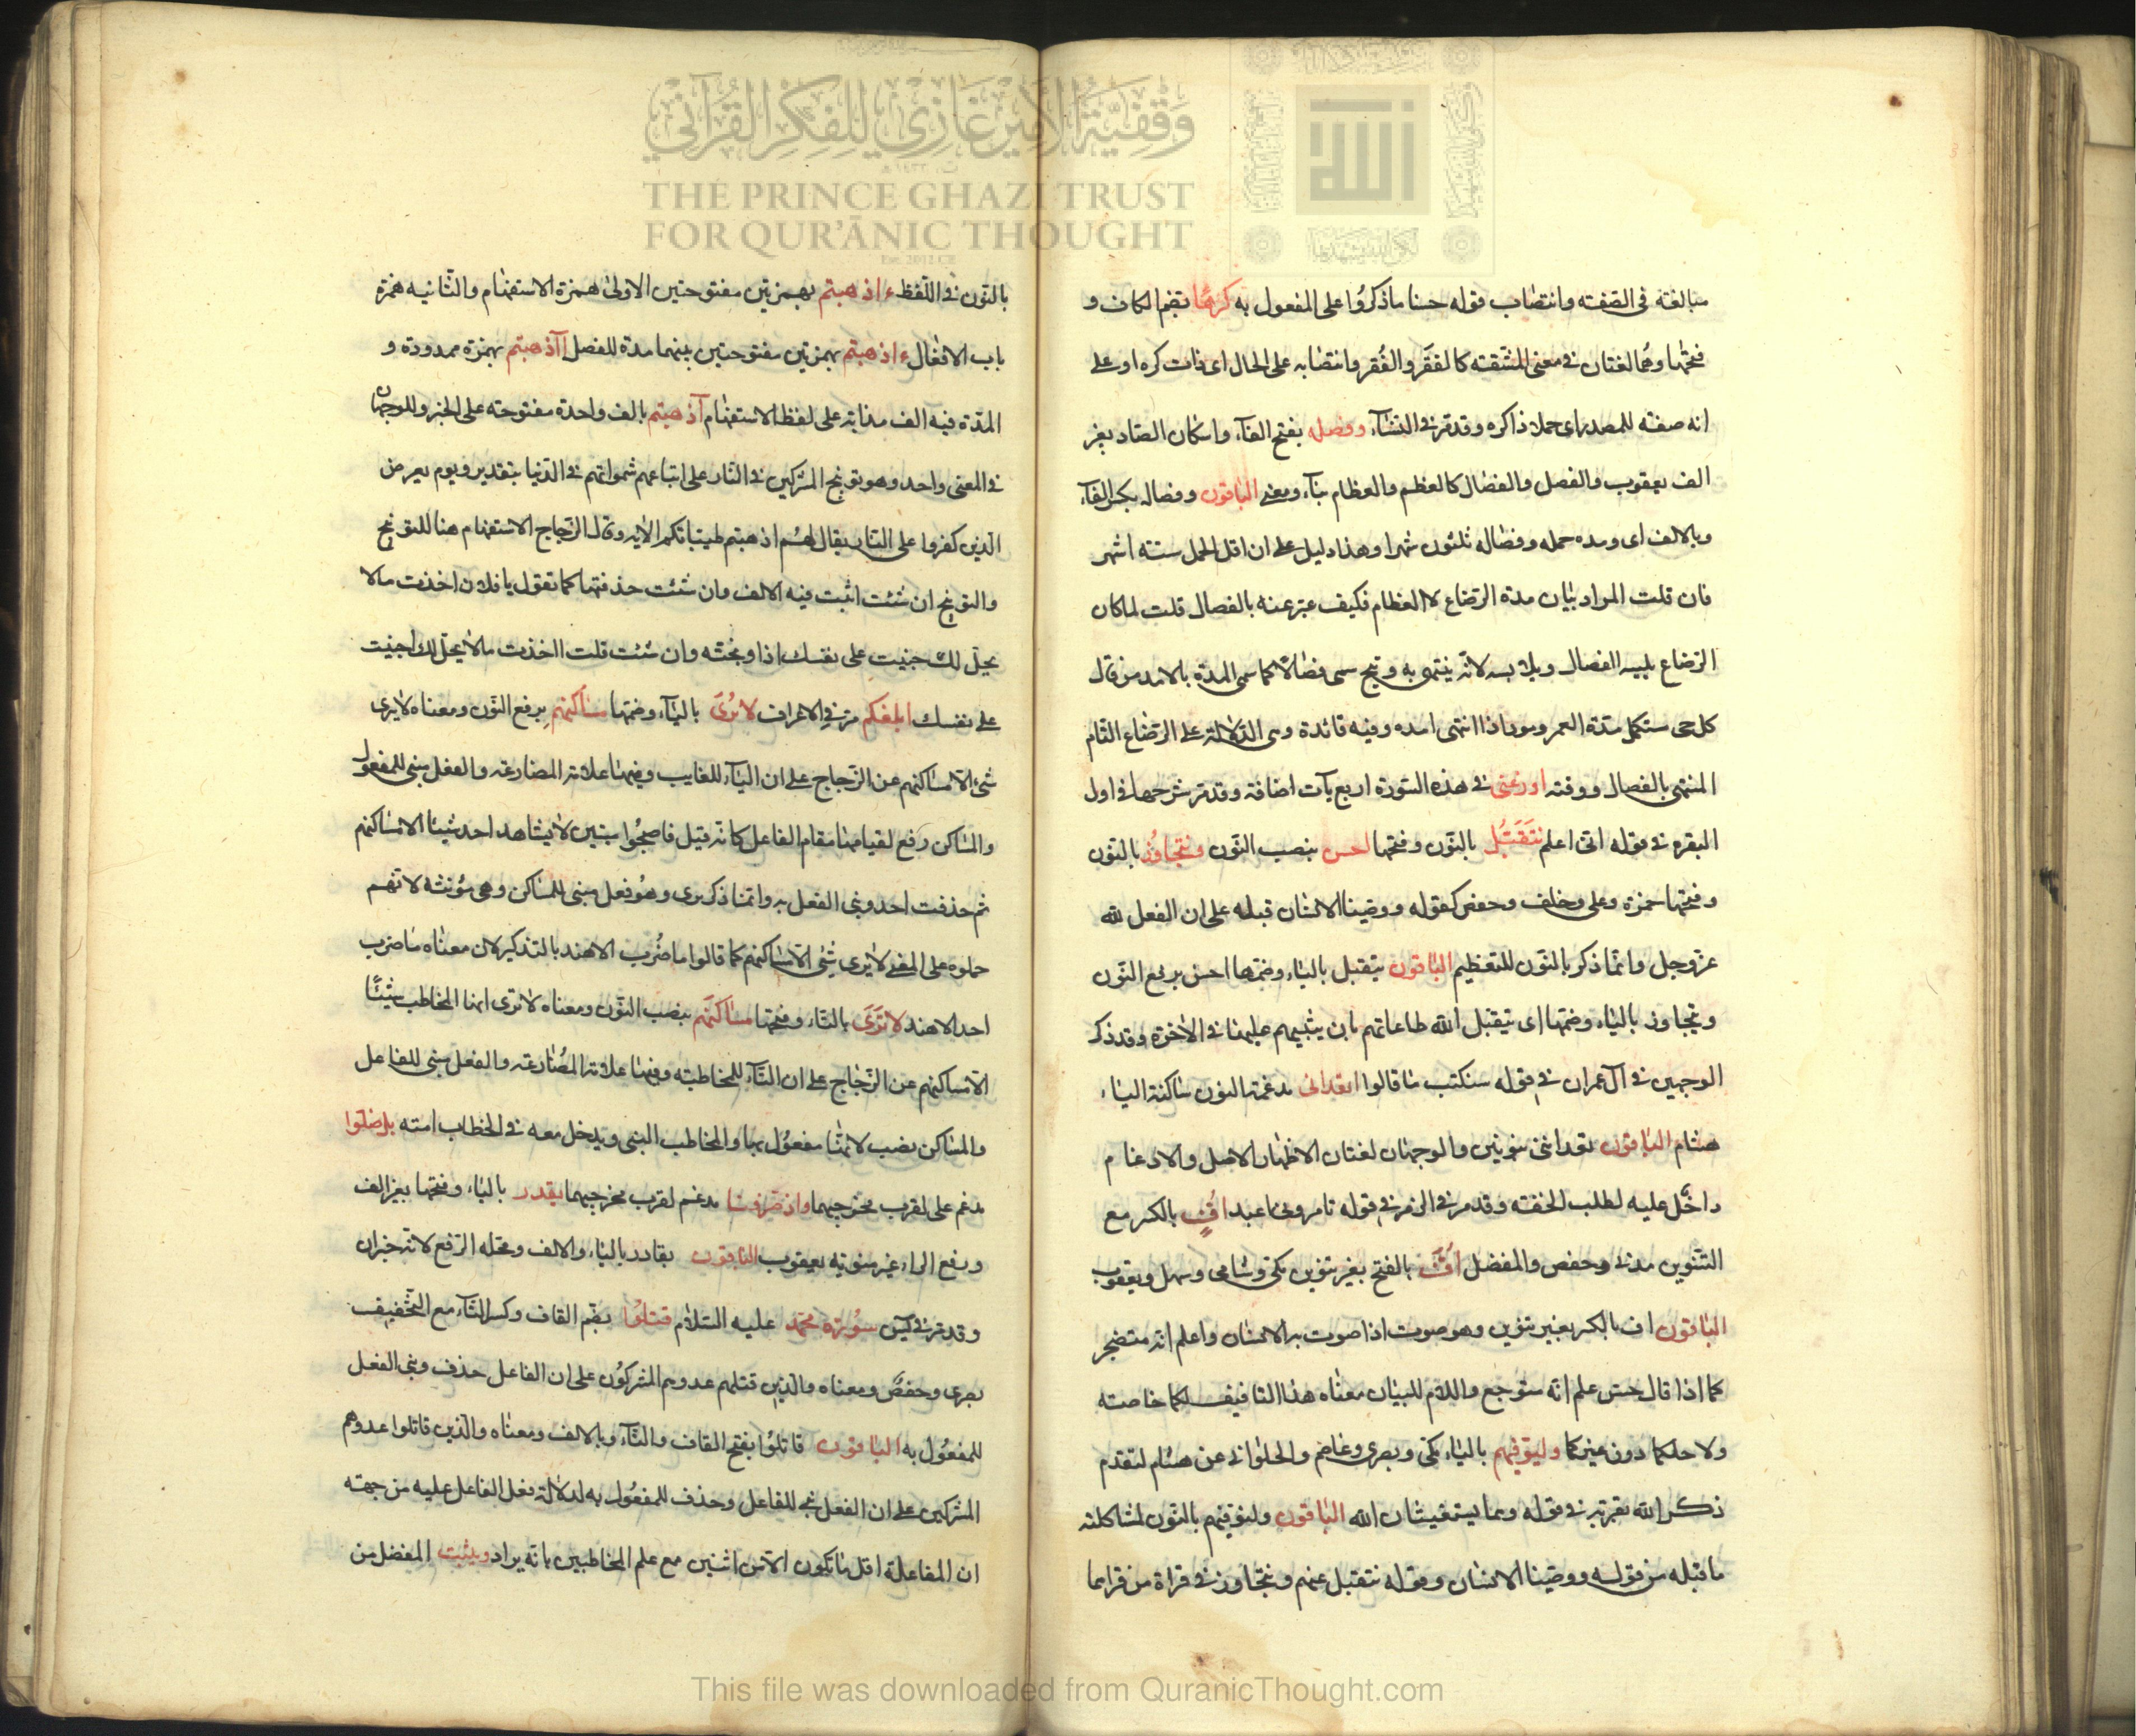 وقفية الأمير غازي للفكر القرآني
THE PRINCE GHAZI TRUST
FOR QUR'ĀNIC THOUGHT
Est. 2012 CE
مبالغة فى الصّفته وانتصاب قوله حسنا ماذكرُوا على المفعول به كرهًا بضم الكاف و
فتحها وهُما لغتان فى معنى المشّقته كالفقَر والفُقر وانتصابه على الحال اى ذات كره او على
انه صفته للمصدر اى حملا ذاكره وقد مّر فى النسّاء وفصله بفتح الفآء واسكان الصّاد بغير
الف يعقوب والفصل والفصال كالعظم والعظام بنآء ومعنى الباقون وفصاله بكسر الفآء
وبالالف اى ومده حمله وفصاله ثلثون شهرا وهذا دليل على ان اقل الحمل ستته اشهر
فان قلت المراد بيان مدة الرضاع لا الفطام فكيف عبّر عنه بالفصال قلت لما كان
الرّضاع يليه الفصال ويلابسه لانّه ينتهى به ويتم سمى فصالًا كما سمى المدة بالامد من قال
كل حى ستكمل مدّة العمر ومود اذا انتهى امده وفيه فائدة وهى الدّلالة على الرّضاع التام
المنتهى بالفصال ووقته اوزعنى فى هذه السّورة اربع يآت اضافة وقد مّر شرحها فى اول
البقره فى قوله انّى اعلم نتَقَبّل بالنّون وفتحها احسن بنصب النّون ونتجاوُز بالنّون
وفتحها حمزة وعلى وخلف وحفص كقوله ووصّينا الانسان قبله على ان الفعل لله
عزّوجل وانمّا ذكر بالنّون للتعظيم الباقون يتقبل باليّاء وضمّها احسن برفع النّون
ويتجاوز باليّاء وضمّها اى يتقبل الله طاعاتهم بان يثيبهم عليها فى الاخرة وقد ذكر
الوجهين فى آل عمران فى قوله سنكتب ما قالوا اتعدانى مدغمة النون ساكنة اليّاء
هشام الباقون تعداننى بنونين والوجهان لغتان الاظهار الاصل والادغام
داخّل عليه لطلب الخفته وقد مر فى الزمر فى قوله تامرونى اعبد افٍّ بالكسر مع
التنّوين مدنى وحفص والمفضل افَّ بالفتح بغير تنوين مكى وشامى وسهل ويعقوب
الباقون اف بالكسر بغير تنوين وهو صوت اذا صوت به الانسان واعلم انه متضجر
كما اذا قال حسّ علم انّه متوجع واللام للبيان معناه هذا التافيف لكما خاصته
ولا جلكما دون غيركما وليوفيهم باليّاء مكى وبصرى وعاصم والحلوانى عن هشام لتقدم
ذكر الله بقربه فى قوله وهما يستغيثان الله الباقون ولنوفيّهم بالنّون لمشاكلته
ماقبله من قوله ووصّينا الانسان وقوله نتقبل عنهم ونتجاوز فى قراة من قراهما
بالنّون فى اللّفظ ءاذهبتم بهمزتين مفتوحتين الاولىٰ همزة الاستفهام والثّانيه همزة
باب الافعال ءاذهبتم بهمزتين مفتوحتين بينهما مدة للفصل اآذهبتم بهمزة ممدودة و
المدّة فيه الف مذابة على لفظ الاستفهام آذهبتم بالف واحدة مفتوحته على الخبر والوجهان
فى المعنى واحد وهو توبيخ المشركين فى النّار على اتباعهم شهواتهم فى الدّنيا بتقدير ويوم يعرض
الّذين كفروا على النّار يقال لهُم اذهبتم طيّباتكم الايه وقال الزّجاج الاستفهام هنا للتوبيخ
والتوبيخ ان شئت اثبت فيه الالف وان شئت حذفتها كما تقول يا فلان اخذت مالا
يحلّ لك جنيت على نفسك اذا وبختّه وان شئت قلت ااخذت مالا يحلّ لك اجنيت
على نفسك ابلغكم مرّ فى الاعراف لا يُرىَ باليّآء وضمّها مساكنهُم برفع النّون ومعناه لايرى
شئ الّا مساكنهم عن الزّجاج على ان اليّآء للغايب وضمّها علامة المضارعة والفعل مبنى للمفعول
والمساكن رفع لقيامها مقام الفاعل كانّه قيل فاصبحُوا مبتين لا يشاهد احد شيئا الا مساكنهم
ثم حذفت احد وبنى الفعل به وانمّا ذكر يرى وهُو فعل مبنى للمساكن وهى مؤنثه لانهم
حملوه على المعنى لا يرى شئى الّا مساكنهم كما قالوا ما ضُرب الا هند بالتذكير لان معناه ما ضرب
احد الا هند لا تَرَىَ بالتّاء وفتحها مساكنَهم بنصب النّون ومعناه لا ترى ايها المخاطب شيئًا
الّا مساكنهم عن الزّجاج على ان التّآء للمخاطبته وفتحها علامة المُضارعة والفعل مبنى للفاعل
والمساكن نصب لانهّا مفعوُل بها والمخاطب النبى ويدخل معه فى الخطاب امته بل ضلّوا
مدغم على لقرب مخرجيهما واذ صّرفنا مدغم لقرب مخرجيهما يقدر باليّاء وفتحها بغير الف
ورفع الراء غير منوّنه يعقوب الباقون بقادر بالبّاء والالف ومحله الرّفع لانّه خبر ان
وقد مرّ فى يٓس سُورَة محّمد عليه السّلام قتلوُا بضّم القاف وكسر التّاء مع التّخفيف
بصرى وحفصٌ ومعناه والّذين قتلهم عدوهم المشركوُن على ان الفاعل حذف وبنى الفعل
للمفعوُل به الباقون قاتلوُا بفتح القاف والتّآء وبالالف ومعناه والّذين قاتلوا عدوهم
المشركين على ان الفعل بنى للفاعل وحذف المفعوُل به لدلالة فعل الفاعل عليه من جهته
ان المفاعلة اقل ما تكون الّا من اثنين مع علم المخاطبين بانّه يراد ويثبت المفضل من
This file was downloaded from QuranicThought.com